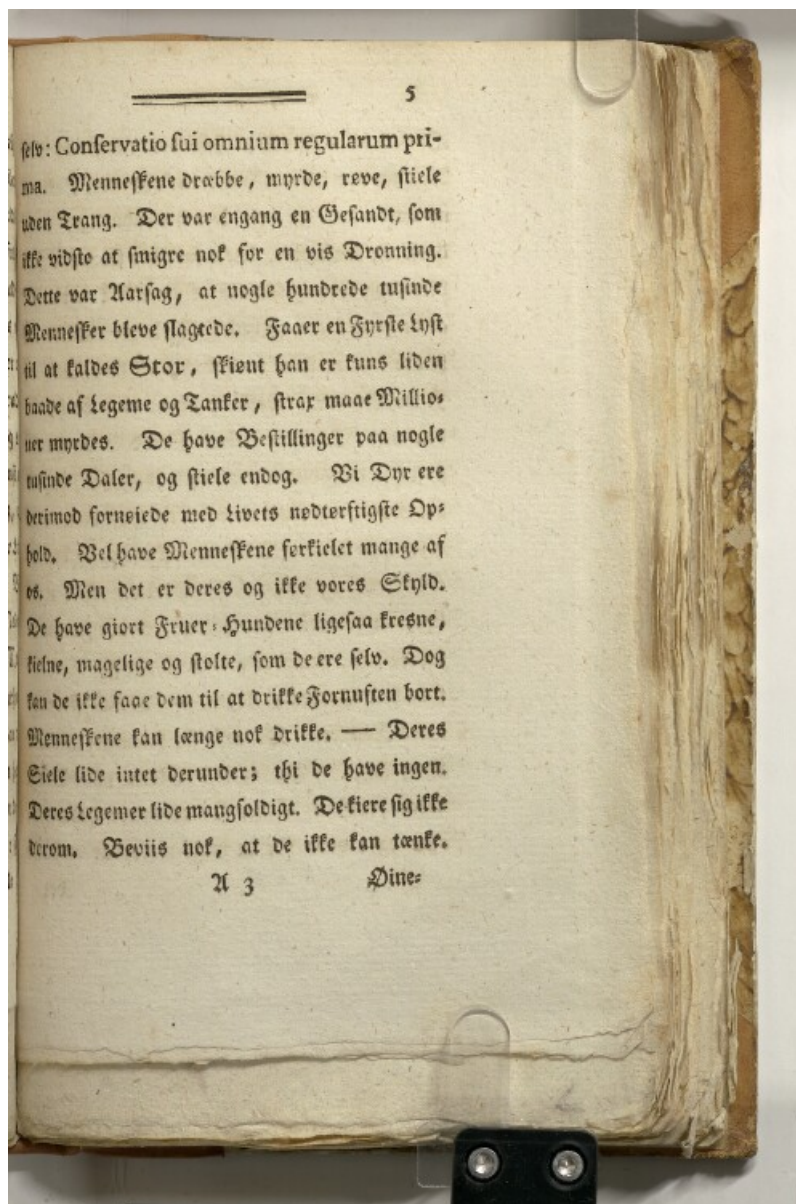 5
selv: Conſervatio ſui omnium regularum pri-
ma. Menneſkene dræbbe, myrde, røve, ſtiele
uden Trang. Der var engang en Geſandt, ſom
ikke vidſte at ſmigre nok for en vis Dronning.
Dette var Aarſag, at nogle hundrede tuſinde
Menneſker bleve ſlagtede. Faaer en Fyrſte Lyſt
til at kaldes Stor, ſkiønt han er kuns liden
baade af Legeme og Tanker, ſtrax maae Millio-
ner myrdes. De have Beſtillinger paa nogle
tuſinde Daler, og ſtiele endog. Vi Dyr ere
derimod fornøiede med Livets nødtørftigſte Op-
hold. Vel have Menneſkene forkielet mange af
os. Men det er deres og ikke vores Skyld.
De have giort Fruer-Hundene ligeſaa kreſne,
kielne, magelige og ſtolte, ſom de ere ſelv. Dog
kan de ikke faae dem til at drikke Fornuften bort.
Menneſkene kan længe nok drikke. — Deres
Siele lide intet derunder; thi de have ingen.
Deres Legemer lide mangfoldigt. De kiere ſig ikke
derom. Beviis nok, at de ikke kan tænke.
A 3 Øine-